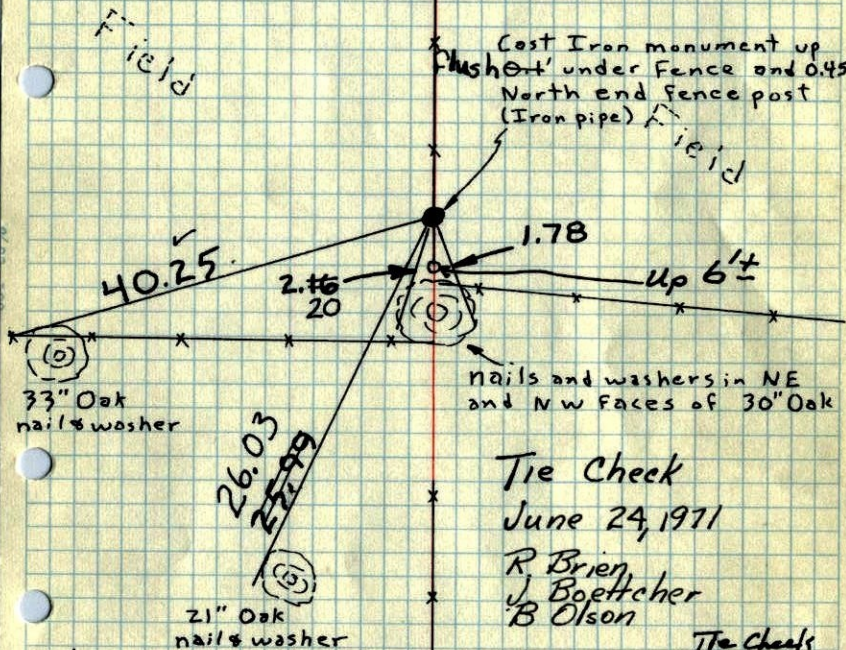 Field
Cast Iron monument up
flush 0.1' under Fence and 0.45
North end fence post
(Iron pipe)
Field
1.78
40.25
2.16
20
Up 6'±
nails and washers in NE
and NW Faces of 30" Oak
33" Oak
nail & washer
26.03
Tie Check
June 24, 1971
R Brien
J Boettcher
B Olson
21" Oak
nail & washer
Tie Check